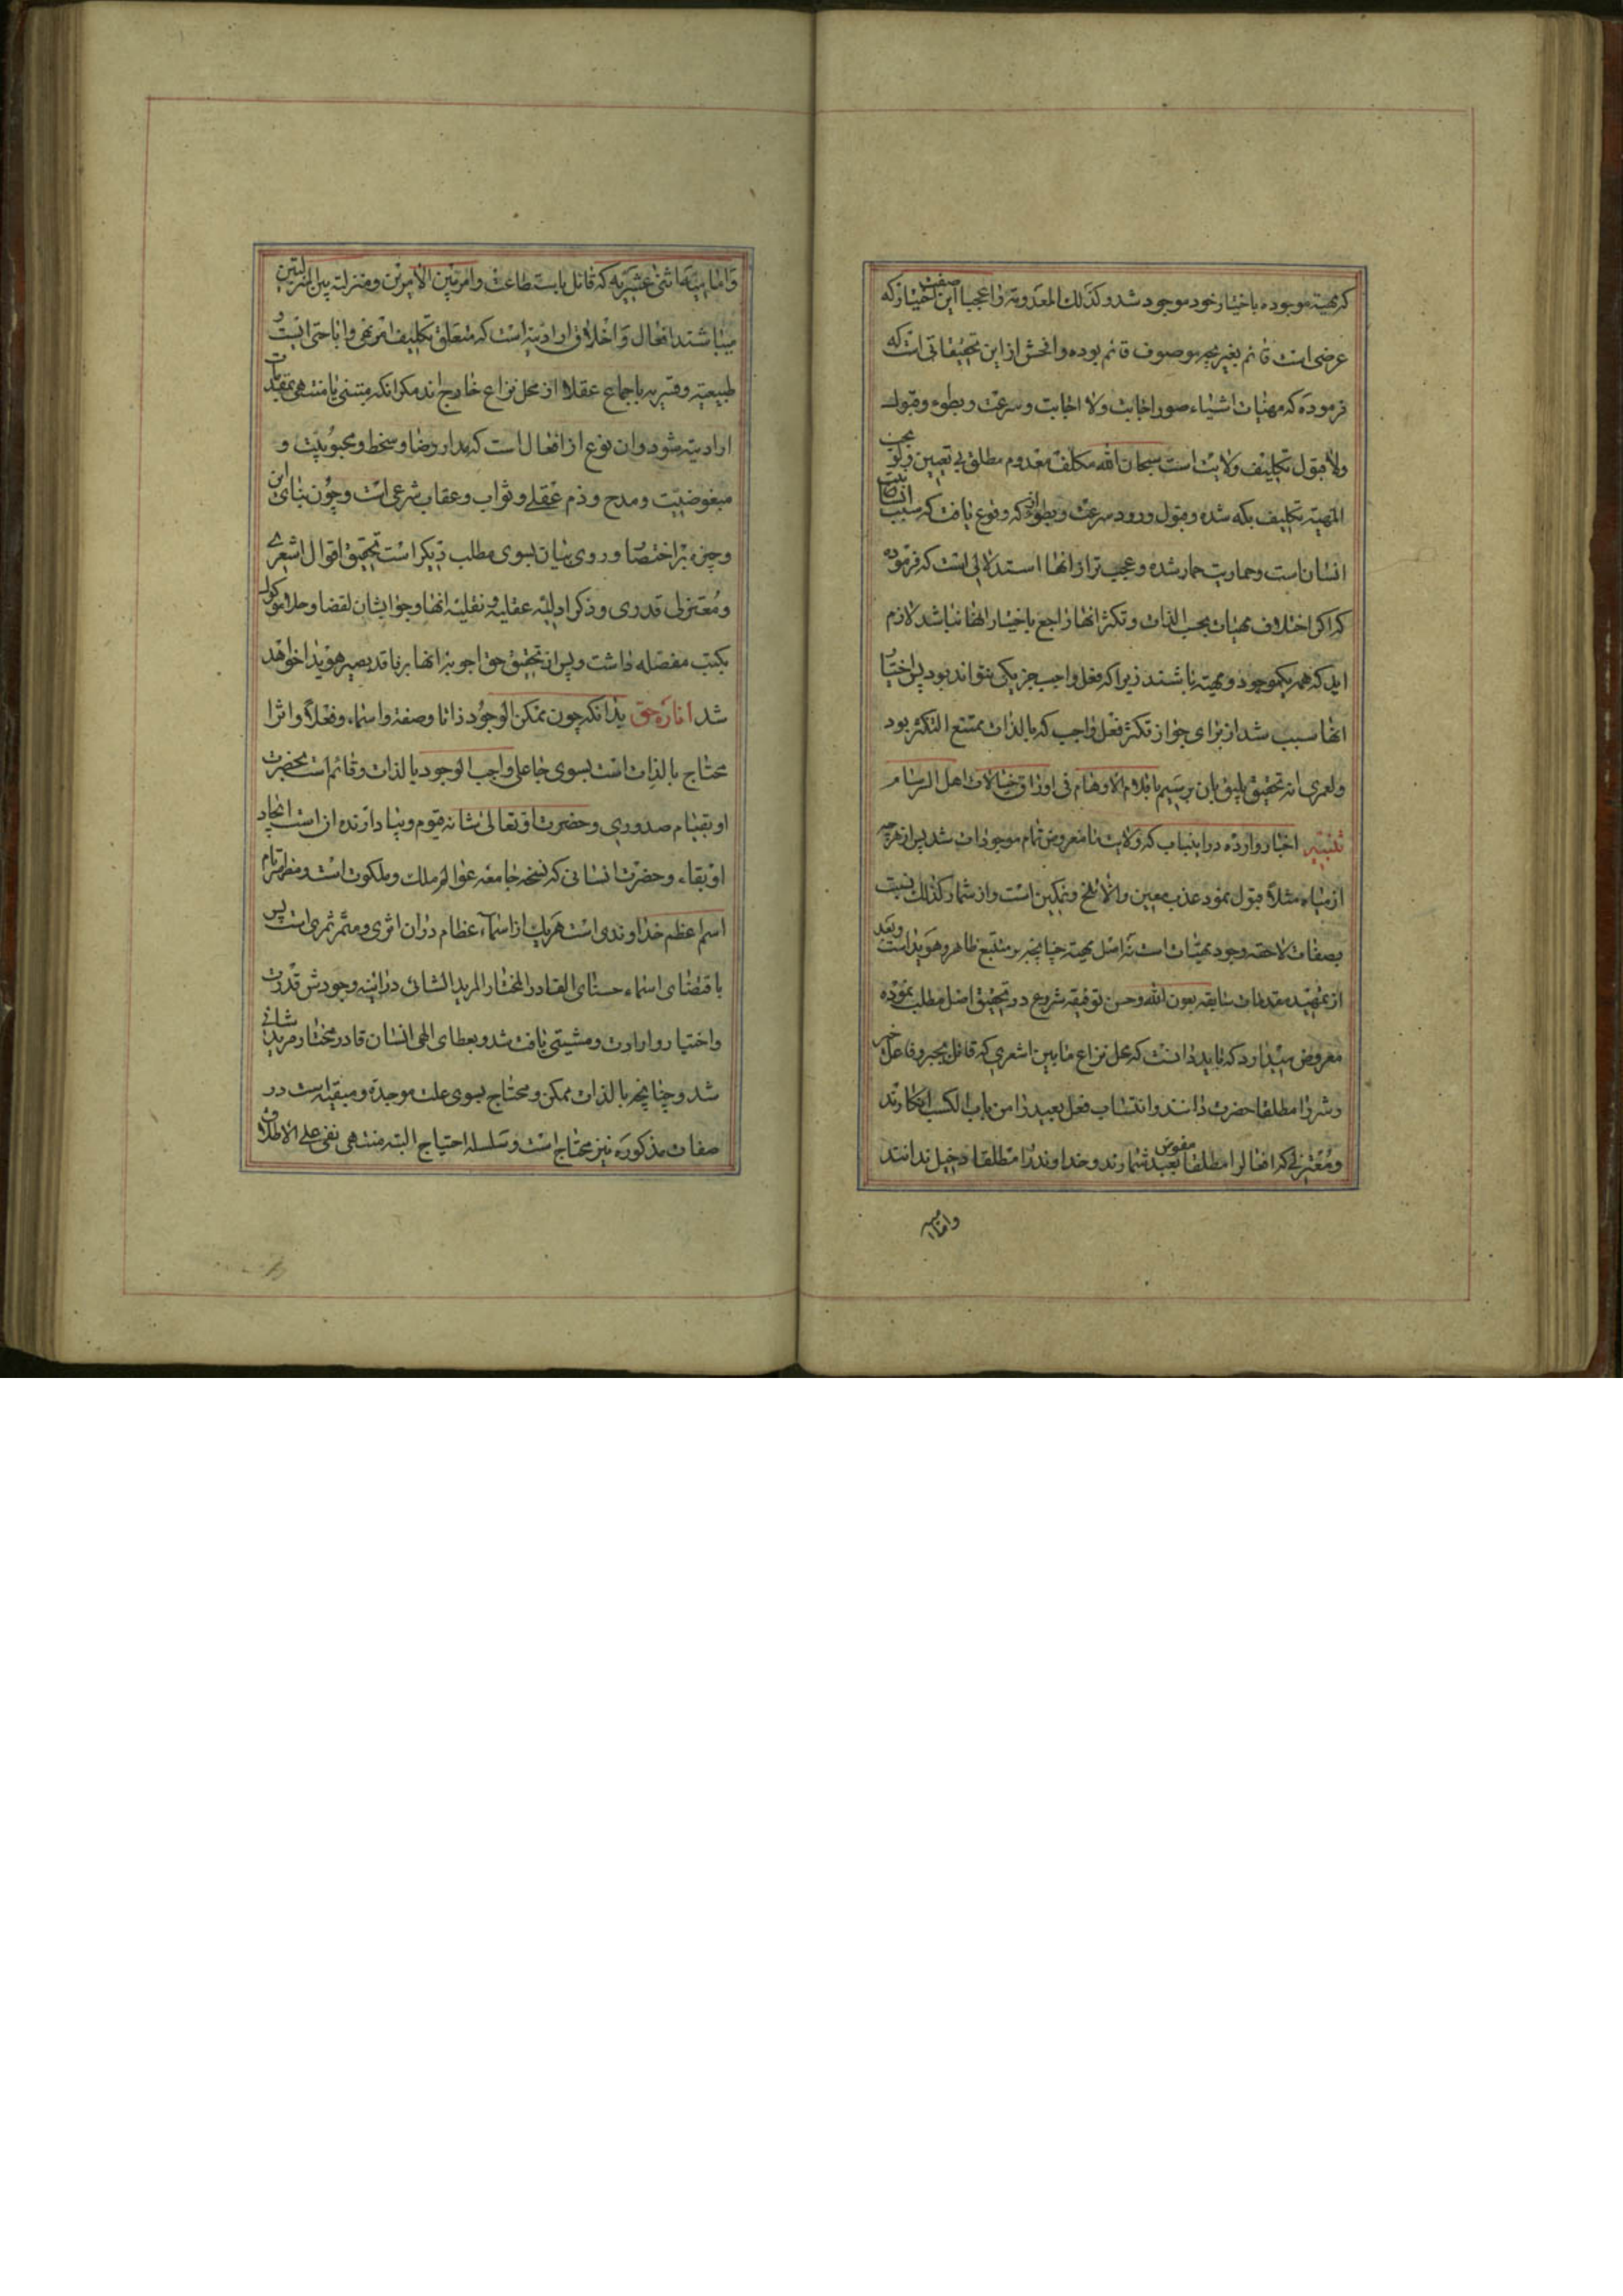 که مهیة موجوده باختیار خود موجود شد و کذلک المعدومة واعجبا این صفت اختیار که
عرضی است قائم بغیر بچه موصوف قائم بوده وافحش از این تحقیقاتی است که
فرموده که مهیات اشیاء صور اجابت ولا اجابت وسرعت وبطوء وقبول
ولا قبول تکلیف ولایت است سبحان الله مکلف معدوم مطلق بی تعیین
المهیة تکلیف بکه شده وقبول ورود سرعت وبطوء که وقوع یافت که سبب انسانیت
انسان است وحماریت حمار شده وعجب تر از انها استدلالی است که فرموده
که اکر اختلاف مهیات بحسب الذات وتکثر انها راجع باختیار انها نباشد لازم
اید که همه یکموجود ومهیة باشند زیرا که فعل واجب جز یکی نتواند بود پس اختیار
انها سبب شد از برای جواز تکثر فعل واجب که بالذات ممتنع التکثر بود
ولعمری انه تحقیق یلیق بان یرسم باقلام الاوهام فی اوراق خیالات اهل السرسام
تنبیه اخبار وارده در اینباب که ولایت ما معروض تمام موجودات شد پس از هر چه
از میاه مثلا قبول نمود عذب معین والا تلخ ونمکین است واز شمار کذلک نسبت
بصفات لاحقه وجود مهیات است نه اصل مهیة چنانچه بر متتبع ظاهر وهویدا است وبعد
از تمهید مقدمات سابقه بعون الله وحسن توفیقه شروع در تحقیق اصل مطلب نموده
معروض میدارد که باید دانست که محل نزاع مابین اشعری که قائل بجبر وفاعل خیر
وشر را مطلقا حضرت دانند وانتساب فعل بعبد را من باب الکسب انکارند
ومعتزلی که افعال را مطلقا مفوض بعبد شمارند وخداوند را مطلقا دخیل ندانند
وامامیه
وامامیة اثنی عشریه که قائل باستطاعت وامر بین الامرین ومنزلة بین المنزلتین
میباشند افعال واخلاق ارادیة است که متعلق تکلیف امر ونهی واباحتی است
طبیعیة وقسریه باجماع عقلا از محل نزاع خارج اند مکر انکه مبتنی یا منتهی بمقدمات
ارادیة شود وان نوع از افعال است که مدار رضا وسخط ومحبوبیت و
مبغوضیت ومدح وذم عقلی وثواب وعقاب شرعی است وچون بنای این
وجیزه بر اختصار وروی بیان بسوی مطلب دیکر است تحقیق اقوال اشعری
ومعتزلی قدری وذکر ادله عقلیه ونقلیه انها وجواب ایشان نقضا وحلا موکول
بکتب مفصله داشت وپس از تحقیق حق اجوبه انها بر ناقد بصیر هویدا خواهد
شد انارة حق بدانکه چون ممکن الوجود ذاتا وصفة واسماء وفعلا واثرا
محتاج بالذات است بسوی جاعل واجب الوجود بالذات وقائم است بحضرت
او بقیام صدوری وحضرت او تعالی شانه قیوم وبپا دارنده ان است ایجاد
او بقاء وحضرت انسانی که نسخه جامعه عوالم ملک وملکوت است ومظهر تام
اسم اعظم خداوندی است هر یک از اسماء عظام در ان اثری ومثمر ثمری است پس
باقتضای اسماء حسنای القادر المختار المرید الشائی در اینه وجودش قدرت
واختیار وارادت ومشیتی یافت شد وبعطای الهی انسان قادر مختار مرید شائی
شد وچنانچه بالذات ممکن ومحتاج بسوی علت موجدة ومبقیه است در
صفات مذکوره نیز محتاج است وسلسله احتیاج البته منتهی نفی علی الاطلاق